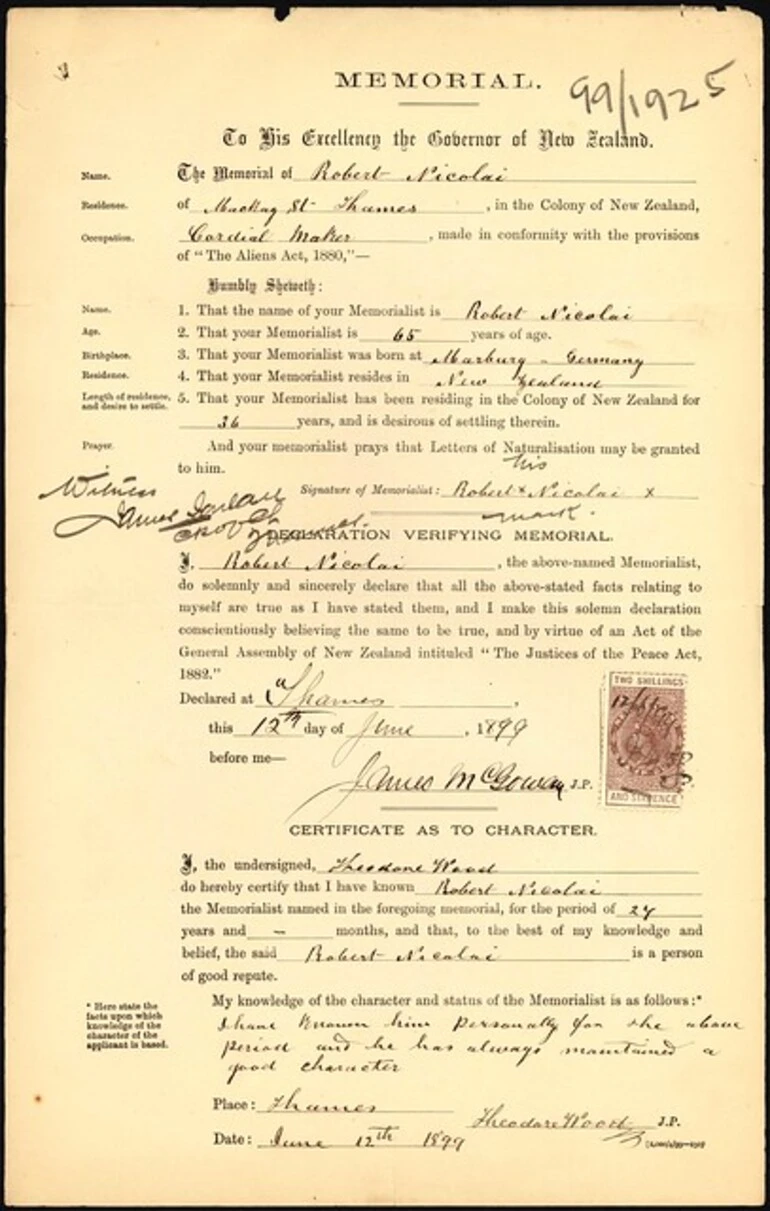 99/1925
MEMORIAL.
To His Excellency the Governor of New Zealand.
Name. The Memorial of Robert Nicolai
Residence. of Mackay St Thames, in the Colony of New Zealand,
Occupation. Cordial Maker, made in conformity with the provisions
of "The Aliens Act, 1880,"—
Humbly Sheweth:
Name. 1. That the name of your Memorialist is Robert Nicolai
Age. 2. That your Memorialist is 65 years of age.
Birthplace. 3. That your Memorialist was born at Marburg - Germany
Residence. 4. That your Memorialist resides in New Zealand
Length of residence, and desire to settle. 5. That your Memorialist has been residing in the Colony of New Zealand for
36 years, and is desirous of settling therein.
Prayer. And your memorialist prays that Letters of Naturalisation may be granted
to him.
his
Signature of Memorialist: Robert x Nicolai x
mark.
Witness
James
DECLARATION VERIFYING MEMORIAL.
I, Robert Nicolai, the above-named Memorialist,
do solemnly and sincerely declare that all the above-stated facts relating to
myself are true as I have stated them, and I make this solemn declaration
conscientiously believing the same to be true, and by virtue of an Act of the
General Assembly of New Zealand intituled "The Justices of the Peace Act,
1882."
Declared at Thames,
this 12th day of June, 1899
before me—
James McGowan J.P.
TWO SHILLINGS
AND SIXPENCE
CERTIFICATE AS TO CHARACTER.
I, the undersigned, Theodore Wood
do hereby certify that I have known Robert Nicolai
the Memorialist named in the foregoing memorial, for the period of 27
years and — months, and that, to the best of my knowledge and
belief, the said Robert Nicolai is a person
of good repute.
* Here state the facts upon which knowledge of the character of the applicant is based.
My knowledge of the character and status of the Memorialist is as follows:*
I have known him personally for the above
period and he has always maintained a
good character
Place: Thames
Theodore Wood J.P.
Date: June 12th 1899